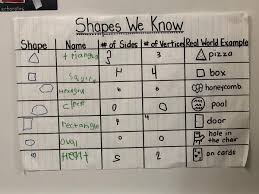 Shapes We Know
Shape Name # of Sides # of Vertices Real World Example
triangle 3 3 pizza
square 4 4 box
hexagon 6 6 honeycomb
circle 0 0 pool
rectangle 4 4 door
oval 0 0 hole in the chair
heart 2 on cards